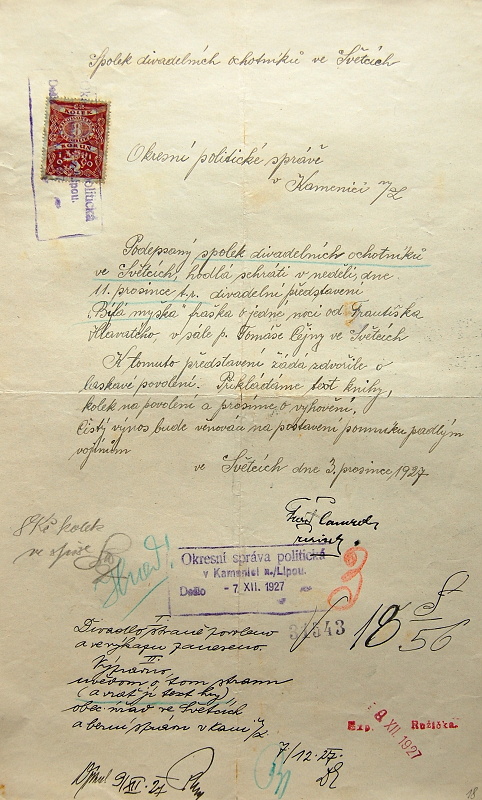 Spolek divadelních ochotníků ve Světcích
KOLEK
Okresní politické správě
v Kamenici n/L
Podepsaný spolek divadelních ochotníků
ve Světcích, hodlá sehráti v neděli, dne
11. prosince t.r. divadelní představení
"Bílá myška" fraška o jedné noci od Františka
Hlavatého, v sále p. Tomáše Cejny ve Světcích
K tomuto představení žádá zdvořile o
laskavé povolení. Přikládáme text knihy,
kolek na povolení a prosíme o vyhovění.
Čistý výnos bude věnován na postavení pomníku padlým
vojínům
ve Světcích dne 3. prosince, 1927
8 Kč kolek
ve spise
Okresní správa politická
v Kamenici n./Lipou.
Došlo - 7. XII. 1927
3
31543
18 56
Divadlo řádně povoleno
a ve výkazu zaneseno.
II.
o tom stranu
(a vrať jí text hry)
obec. úřad ve Světcích
a berní správu v Kam. n/L
7/12. 27.
8 XII. 1927
Exp. Ružička.
9/XII. 27
18